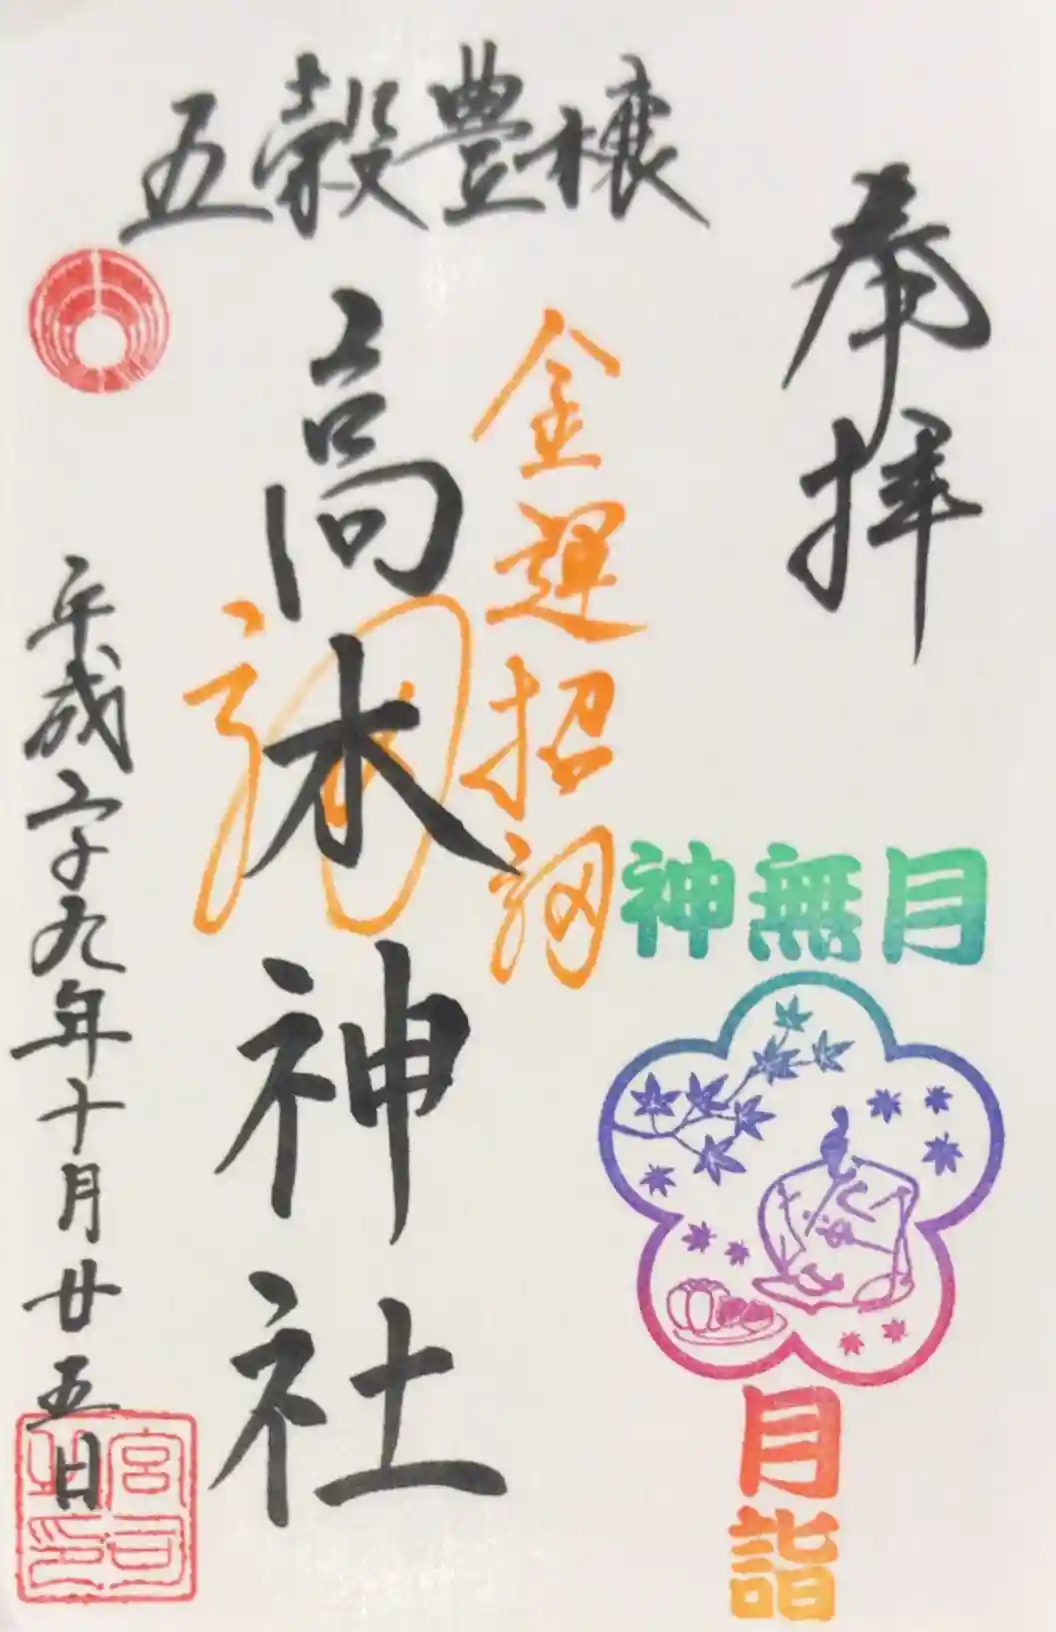 奉拝
五穀豊穣
金運招福
高木神社
平成二十九年十月廿五日
宮司之印
神無月
月詣